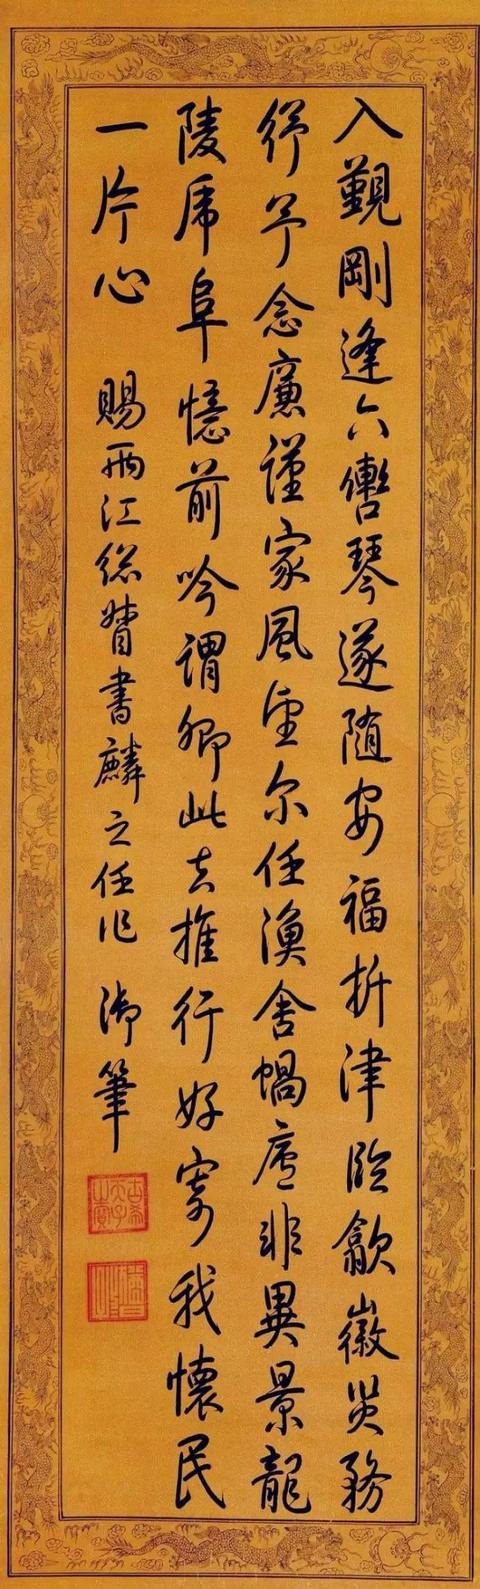 入覲剛逢六轡琴遂随安福析津臨歙徽災務
紓予念廉謹家風望尔任漁舍蝸廬非異景龍
陵虎阜憶前吟謂卿此去推行好寄我懷民
一片心 賜兩江總督書麟之任作 御筆
古希天子之寶